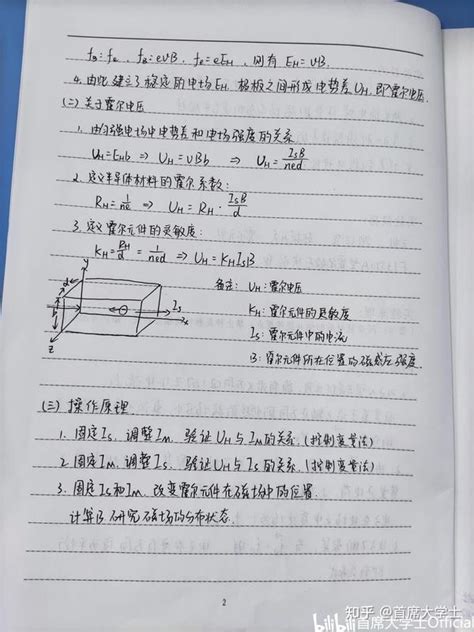 f_B=f_e, f_B=evB, f_e=eE_H, 则有 E_H=vB.
4. 由此,建立了稳定的电场E_H, 极板之间形成电势差U_H,即霍尔电压.
(二) 关于霍尔电压
1. 由匀强电场中电势差和电场强度的关系
U_H=E_Hb ⇒ U_H=vBb ⇒ U_H=I_sB/ned
2. 定义半导体材料的霍尔系数:
R_H=1/ne ⇒ U_H=R_H·I_sB/d
3. 定义霍尔元件的灵敏度:
K_H=R_H/d=1/ned ⇒ U_H=K_HI_sB
备注: U_H: 霍尔电压
K_H: 霍尔元件的灵敏度
I_s: 霍尔元件中的电流
B: 霍尔元件所在位置的磁感应强度
y
d
b
I_s
x
z
(三) 操作原理
1. 固定I_s, 调整I_M, 验证U_H与I_M的关系. (控制变量法)
2. 固定I_M, 调整I_s, 验证U_H与I_s的关系. (控制变量法)
3. 固定I_s和I_M, 改变霍尔元件在磁场中的位置.
计算B,研究磁场的分布状态.
2
知乎 @首席大学士
bilibili 首席大学士Official